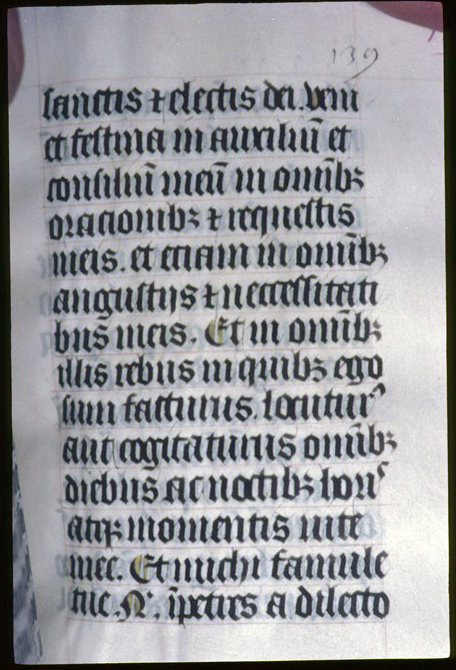 139
sanctis ⁊ electis dei. veni
et festina in auxiliū et
consiliū meū in omībꝫ
oracionibꝫ ⁊ requestis
meis. et etiam in omībꝫ
angustiis ⁊ neccessitati
bus meis. Et in omībꝫ
illis rebus in quibꝫ ego
sum facturus. locuturꝰ
aut cogitaturus omībꝫ
diebus ac noctibꝫ horis
atqꝫ momentis uite
mee. Et michi famule
tue. N. īpetres a dilecto